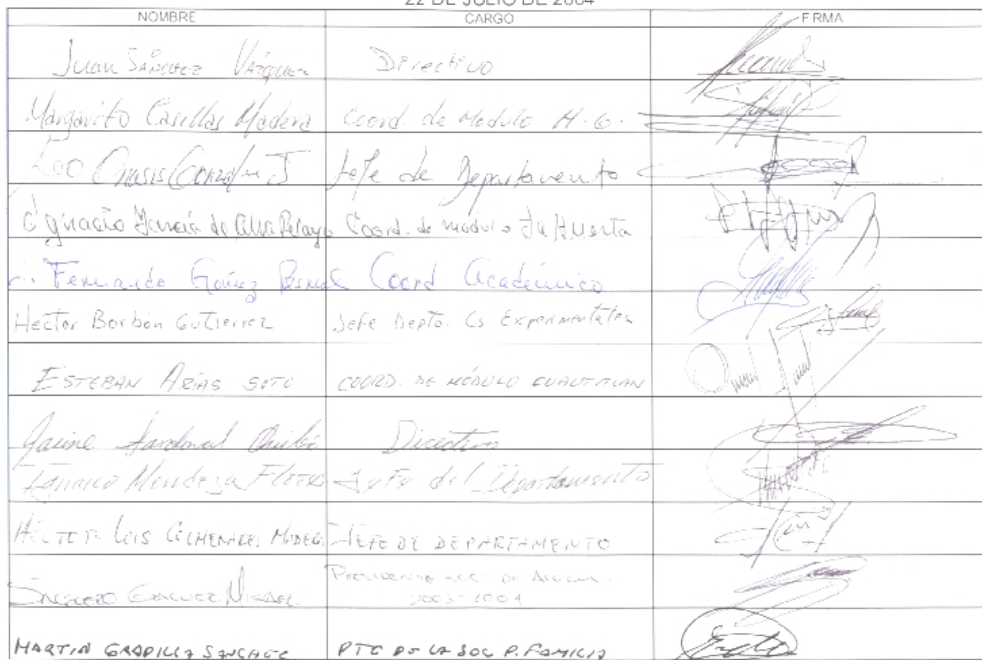 22 DE JULIO DE 2004
NOMBRE CARGO FIRMA
Juan Sánchez Vázquez Directivo
Margarito Casillas Madera Coord. de Modulo
Jefe de Departamento
Ignacio García de Alba Pelayo Coord. de modulo La Huerta
Fernando Coord Académico
Hector Borbón Gutierrez Jefe Depto. Cs Experimentales
ESTEBAN ARIAS SOTO COORD. DE MÓDULO CUAUTITLAN
Jaime Sandoval Directivo
Ignacio Mendoza Flores Jefe del Departamento
HECTOR LUIS COLMENARES JEFE DE DEPARTAMENTO
2003-2004
MARTIN GRADILLA SANCHEZ PTE DE LA SOC P. FAMILIA